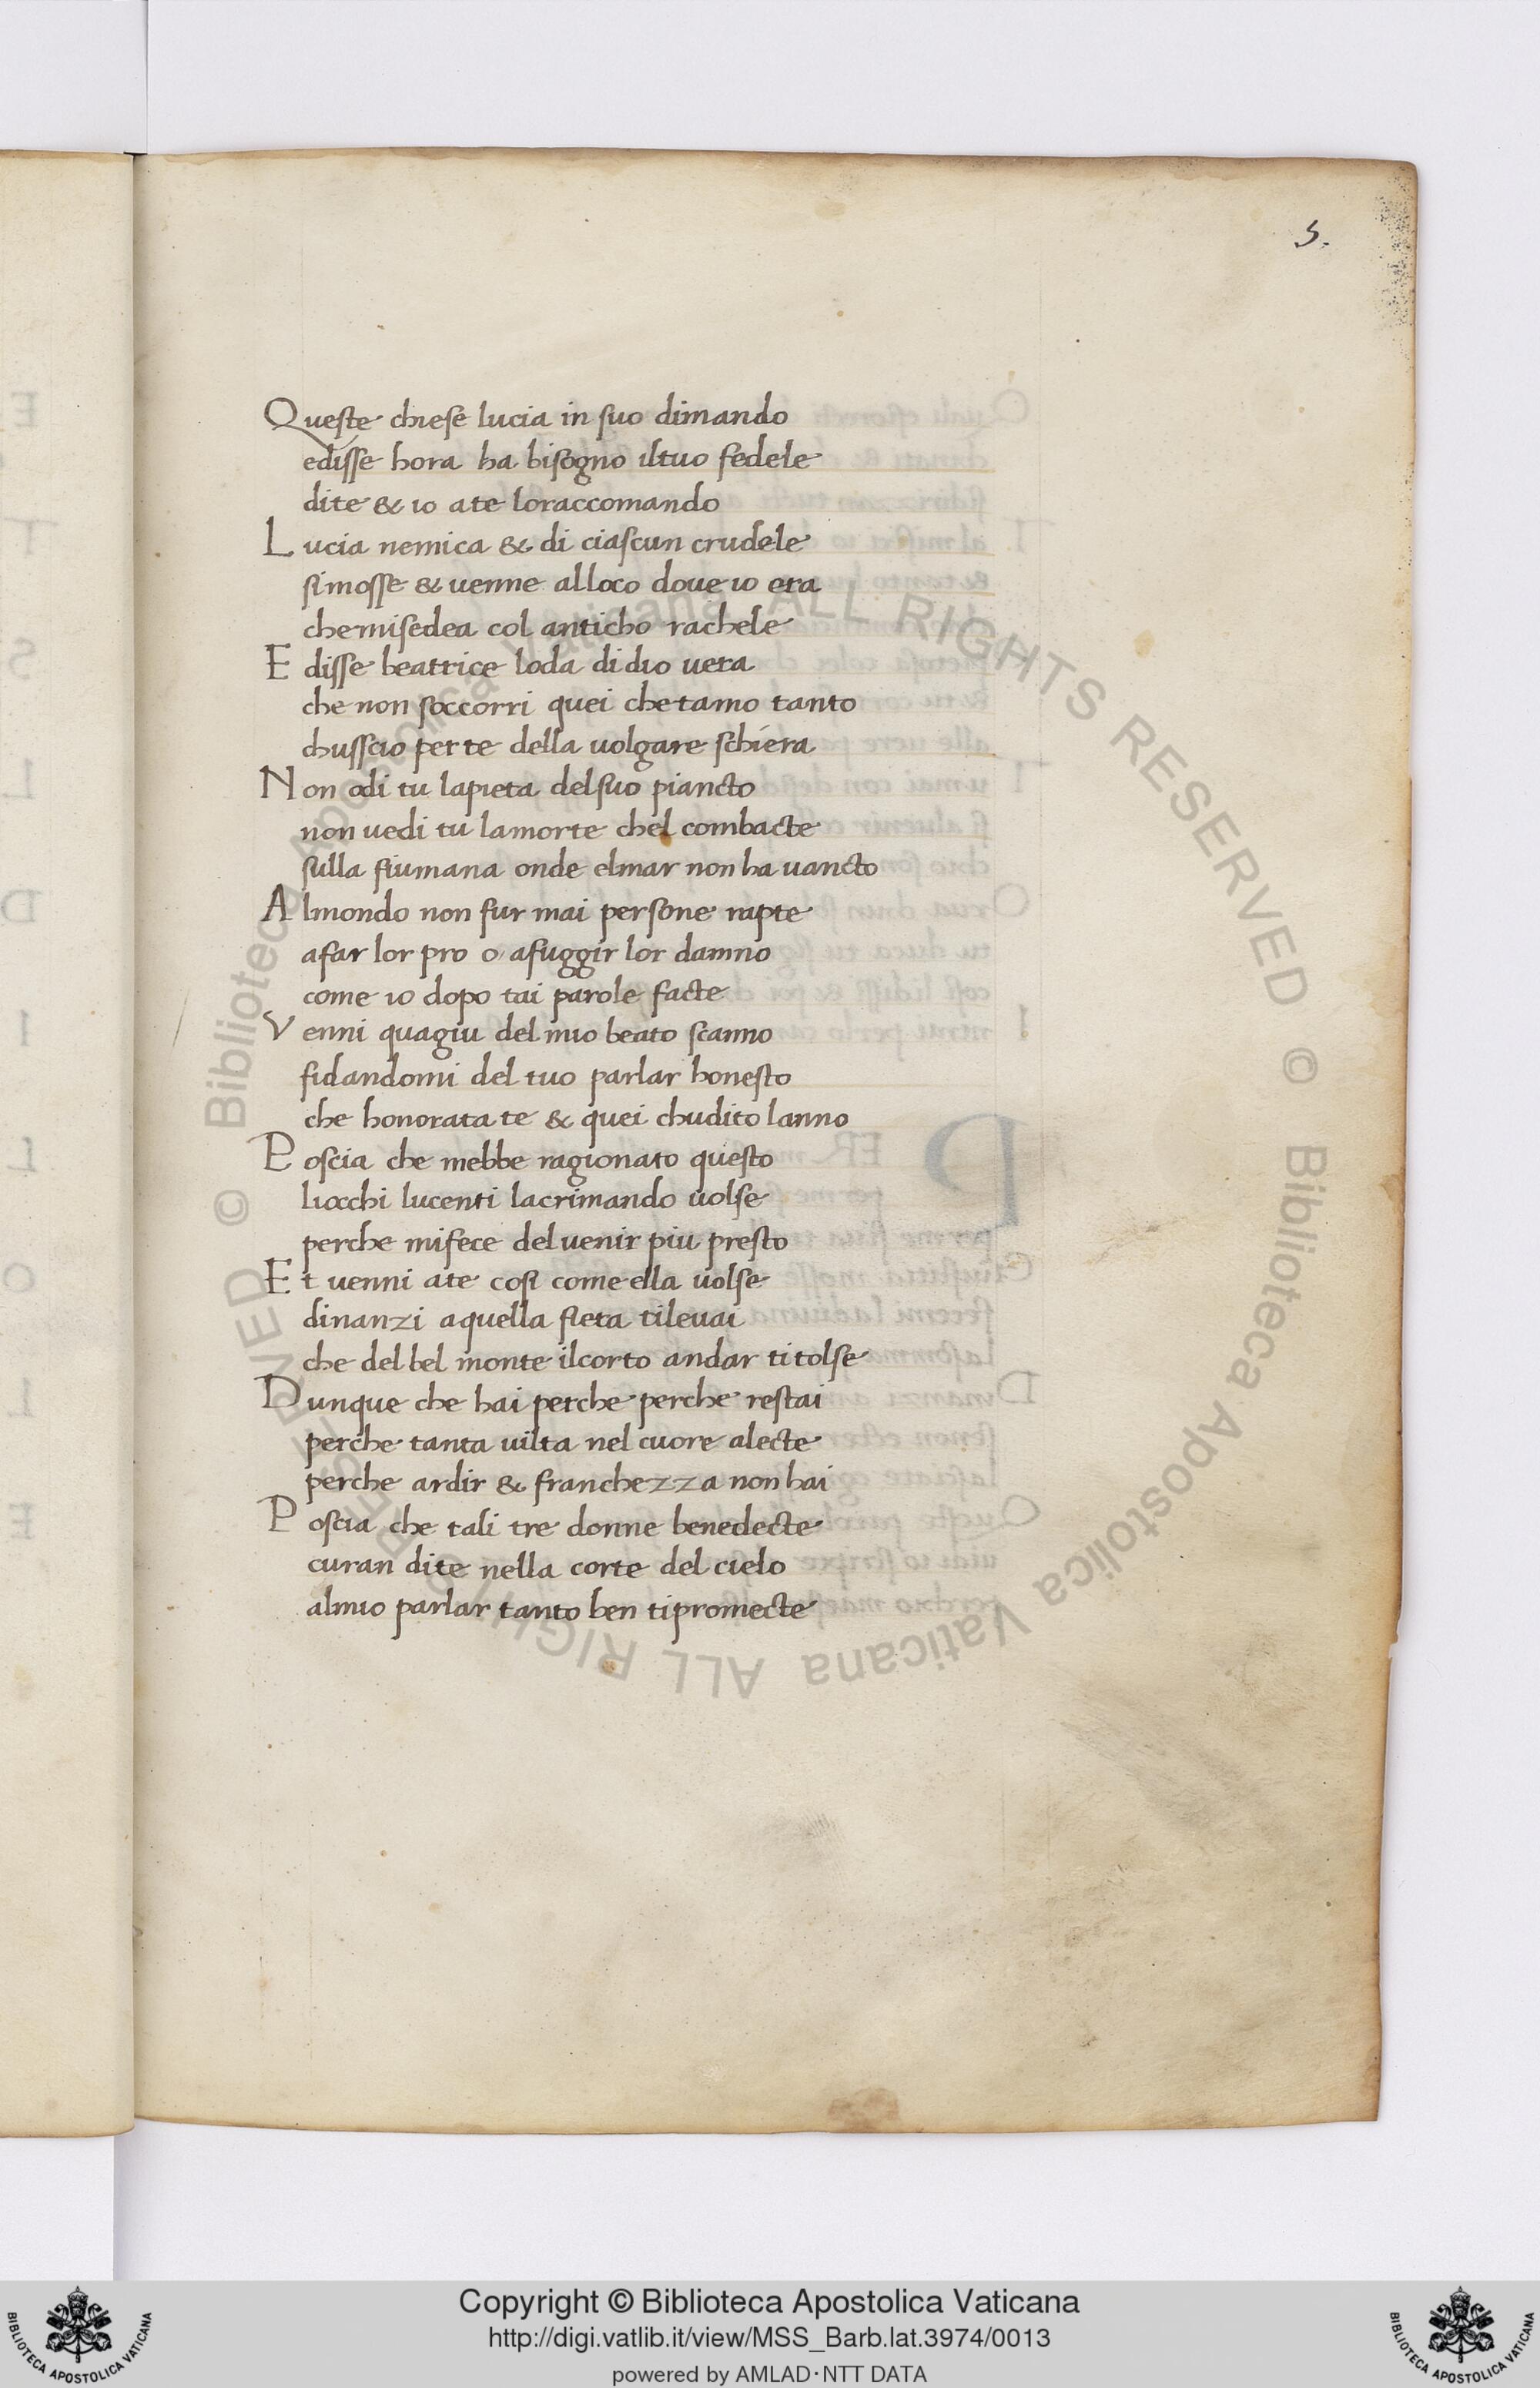 5.
Queste chiese lucia in suo dimando
edisse hora ha bisogno iltuo fedele
dite & io ate loraccomando
Lucia nemica & di ciascun crudele
simosse & uenne alloco doue io era
chemisedea col anticho rachele
Edisse beatrice loda didio uera
che non soccorri quei chetamo tanto
chusscio per te della uolgare schiera
Non odi tu lapieta delsuo piancto
non uedi tu lamorte chel combacte
sulla fiumana onde elmar non ha uancto
Almondo non fur mai persone rapte
afar lor pro o afuggir lor damno
come io dopo tai parole facte
Venni quagiu del mio beato scanno
fidandomi del tuo parlar honesto
che honorata te & quei chudito lanno
Poscia che mebbe ragionato questo
liocchi lucenti lacrimando uolse
perche mifece deluenir piu presto
Et uenni ate cosi come ella uolse
dinanzi aquella fiera tileuai
che delbel monte ilcorto andar titolse
Dunque che hai perche perche restai
perche tanta uilta nel cuore alecte
perche ardir & franchezza non hai
Poscia che tali tre donne benedecte
curan dite nella corte del cielo
almio parlar tanto ben tipromecte
© Biblioteca Apostolica Vaticana ALL RIGHTS RESERVED © Biblioteca Apostolica Vaticana ALL RIGHTS RESERVED
BIBLIOTECA APOSTOLICA VATICANA
Copyright © Biblioteca Apostolica Vaticana
http://digi.vatlib.it/view/MSS_Barb.lat.3974/0013
powered by AMLAD·NTT DATA
BIBLIOTECA APOSTOLICA VATICANA